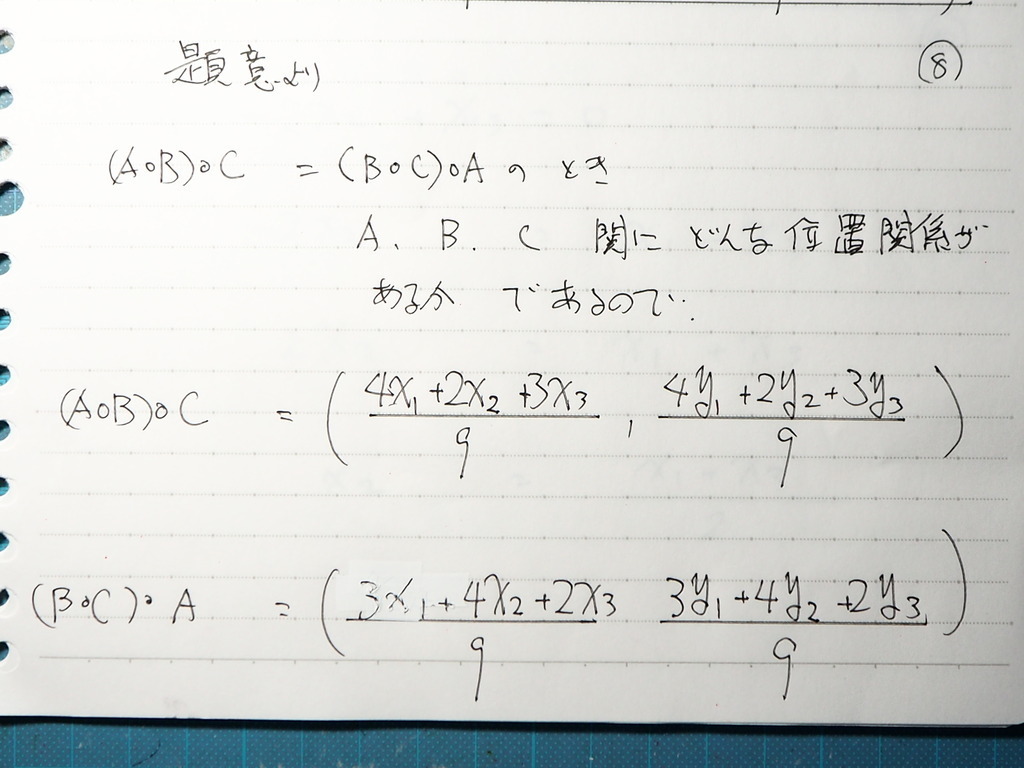 ⑧
題意より
(A∘B)∘C = (B∘C)∘A のとき
A、B、C 関に どんな位置関係が
あるか であるので、
(A∘B)∘C = ( (4x₁+2x₂+3x₃)/9 , (4y₁+2y₂+3y₃)/9 )
(B∘C)∘A = ( (3x₁+4x₂+2x₃)/9 (3y₁+4y₂+2y₃)/9 )